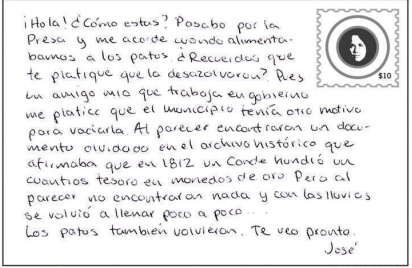 ¡Hola! ¿Cómo estas? Pasaba por la
Presa y me acorde cuando alimenta-
bamos a los patos. ¿Recuerdas que
te platique que la desazolvaron? Pues
un amigo mio que trabaja en gobierno
me platico que el municipio tenía otro motivo
para vaciarla. Al parecer encontraron un docu-
mento olvidado en el archivo histórico que
afirmaba que en 1812 un Conde hundió un
cuantios tesoro en monedas de oro Pero al
parecer no encontraron nada y con las lluvias
se volvió a llenar poco a poco...
Los patos también volvieron. Te veo pronto.
José
$10